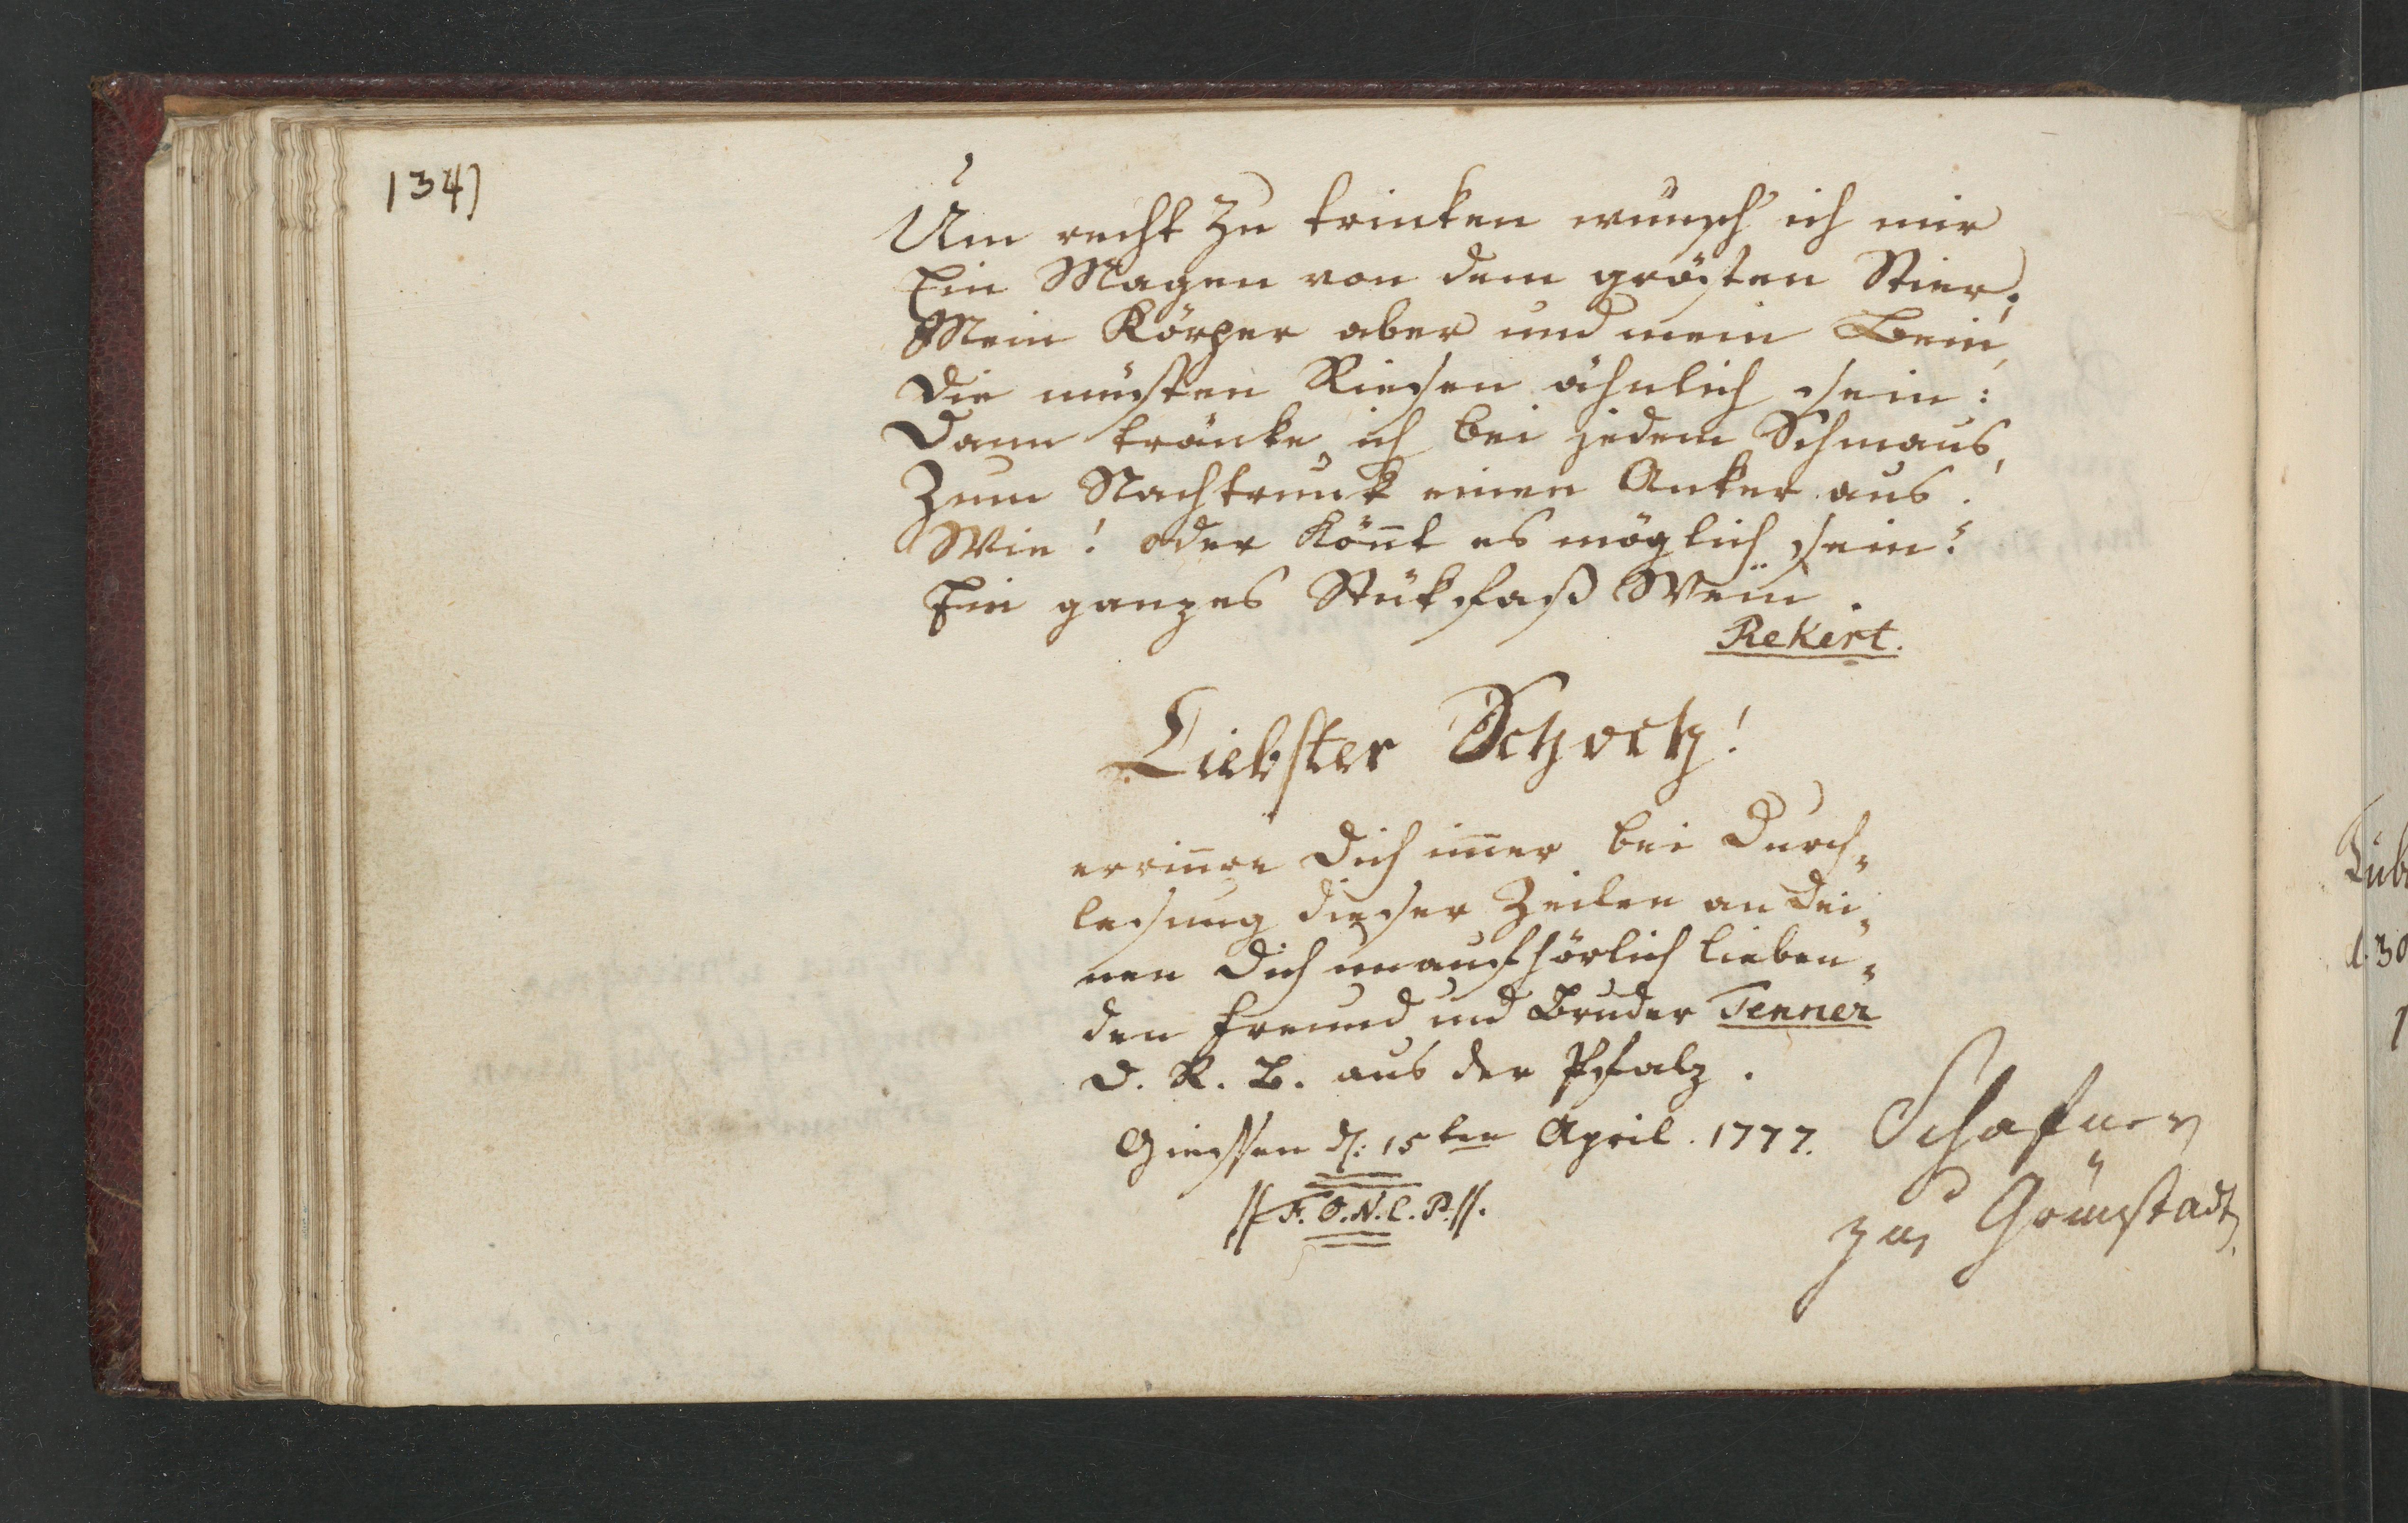 134)
Um recht zu trinken wünsch' ich mir
Ein Magen von dem grösten Stier;
Mein Körper aber und mein Bein,
Die müsten Riesen ähnlich sein:
Dann tränke ich bei jedem Schmaus,
Zum Nachtrunk einen Anker aus.
Wie! oder Kön̄t es möglich sein?
Ein ganzes Stükfaß Wein.
Rekert.
Liebster
errin̄re Dich im̄er bei Durch„
lesung dieser Zeilen an Dei„
nen Dich unaufhörlich lieben„
den Freund und Bruder Tenner
D. R. B. aus der Pfalz.
Giessen d: 15ten April. 1777.
//F. O. N. C. P.//.
Schafner
zu